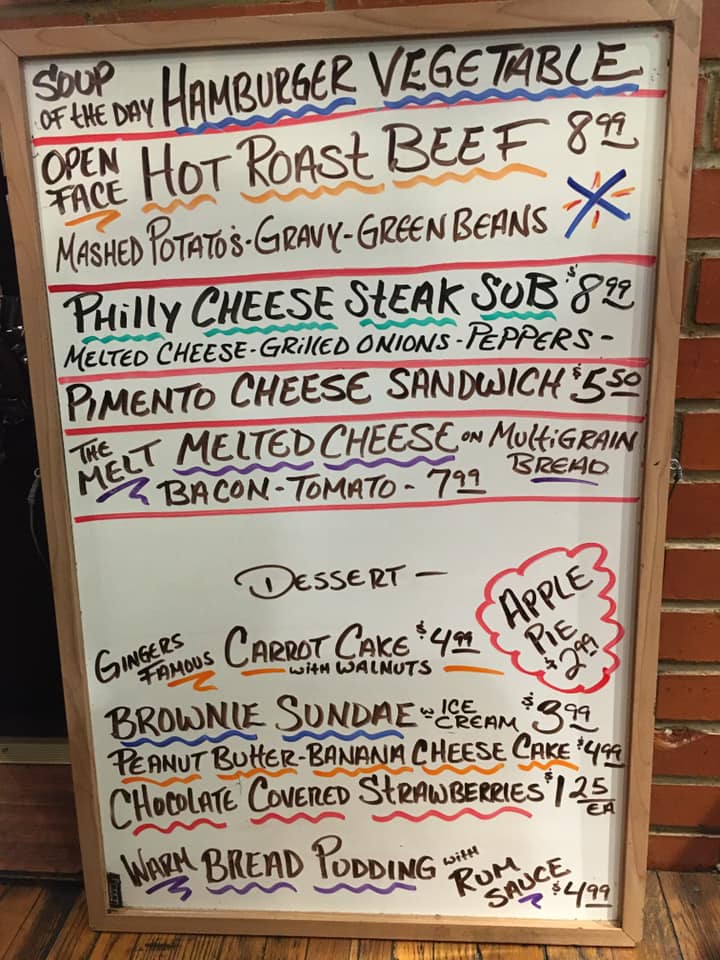 SOUP OF THE DAY HAMBURGER VEGETABLE
OPEN FACE HOT ROAST BEEF 8.99
MASHED POTATO'S-GRAVY-GREEN BEANS
PHILLY CHEESE STEAK SUB $8.99
MELTED CHEESE-GRILLED ONIONS-PEPPERS-
PIMENTO CHEESE SANDWICH $5.50
THE MELT MELTED CHEESE ON MULTIGRAIN BREAD
BACON-TOMATO- 7.99
DESSERT —
APPLE PIE $2.99
GINGERS FAMOUS CARROT CAKE $4.99
WITH WALNUTS
BROWNIE SUNDAE W ICE CREAM $3.99
PEANUT BUTTER-BANANA CHEESE CAKE $4.99
CHOCOLATE COVERED STRAWBERRIES $1.25 EA
WARM BREAD PUDDING WITH RUM SAUCE $4.99